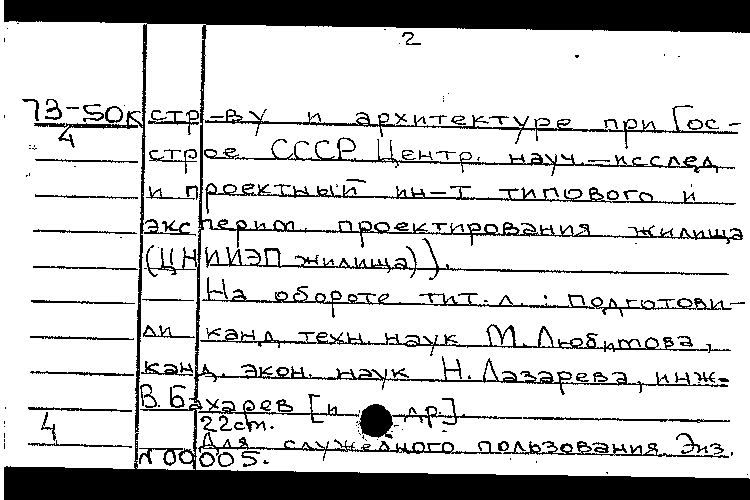 2
73-50к стр-ву и архитектуре при Гос-
4
строе СССР. Центр. науч.-исслед
и проектный ин-т типового и
эксперим. проектирования жилища
(ЦНИИЭП жилища)).
На обороте тит. л. : подготови-
ли канд. техн. наук М. Любимова,
канд. экон. наук Н. Лазарева, инж.
В. Бахарев [и др].
4
22cm.
Для служебного пользования. Экз.
N 00005.